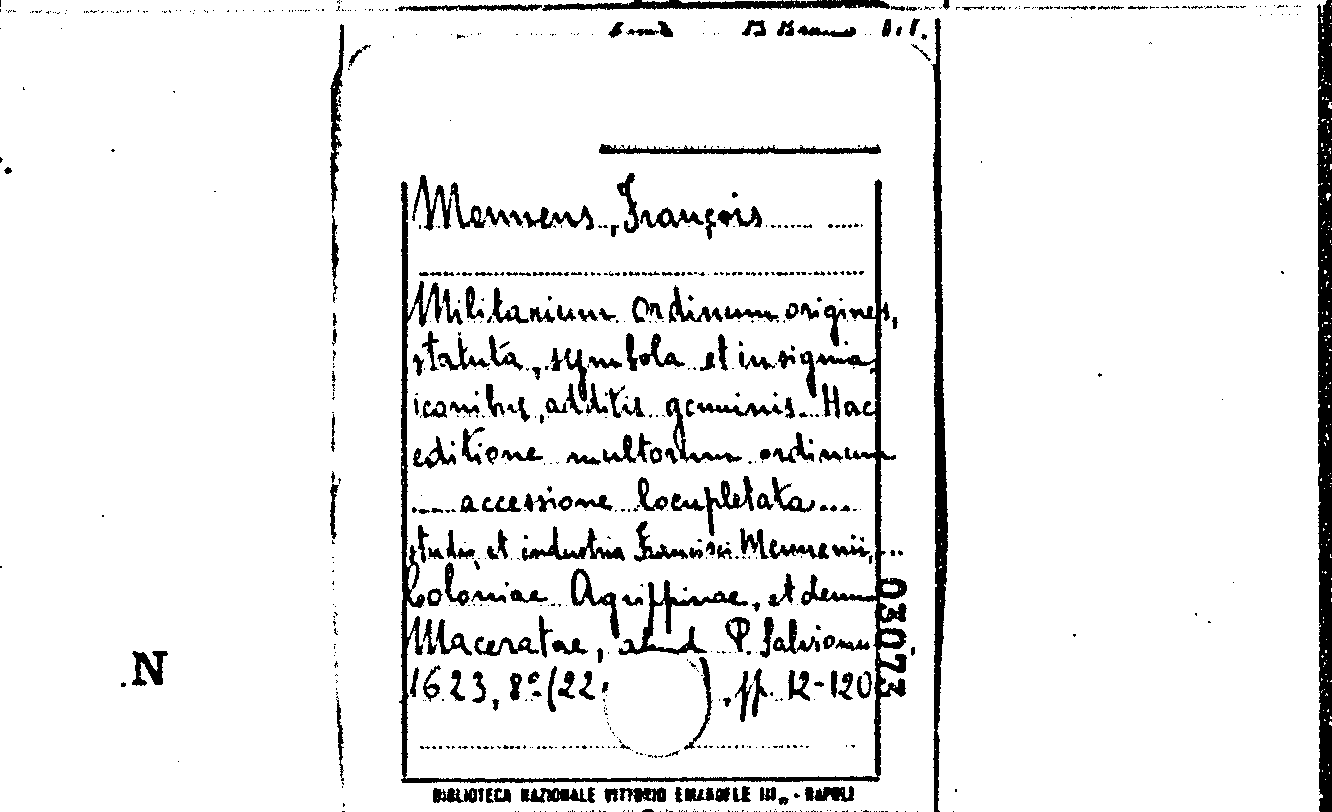 B. Branc. Mennens, François
Militarium ordinum origines,
statuta, symbola et insignia,
iconibus, additis genuinis. Hac
editione multorum ordinum
.... accessione locupletata....
studio, et industria Francisci Mennenii, ...
Coloniae Agrippinae, et denuo
Maceratae, apud P. Salvionum
1623, 8º (22. ), pp. 12-120
03073
N
BIBLIOTECA NAZIONALE VITTORIO EMANUELE III - NAPOLI